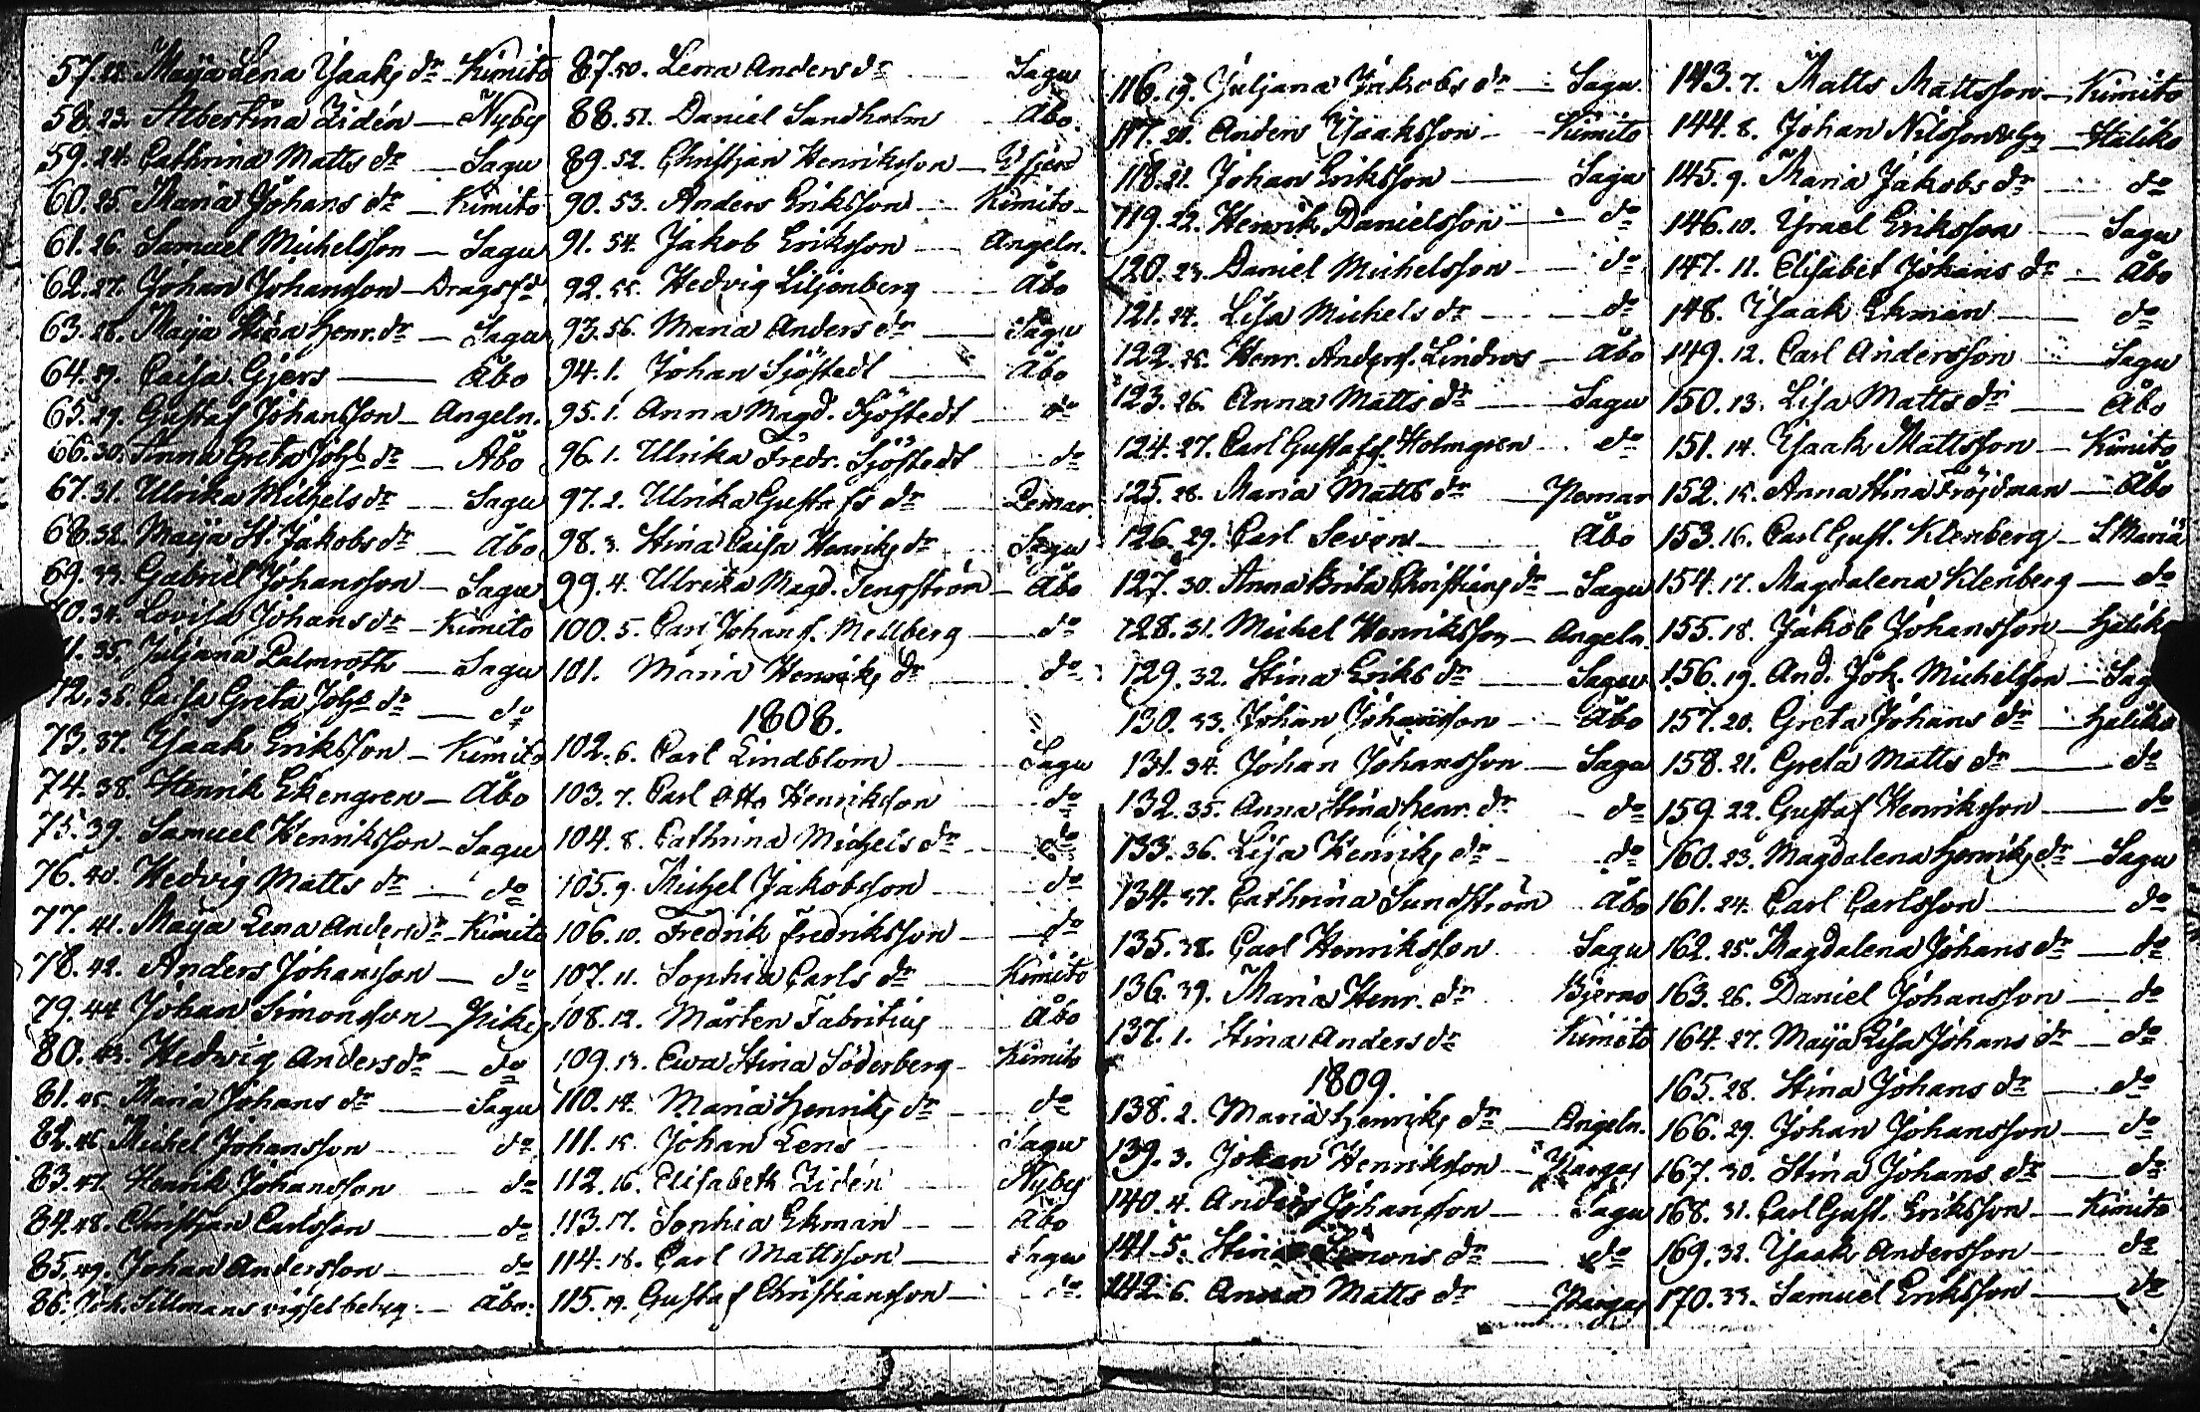 57. 22. Maija Lena Ysaaks dr — Kimito
58. 23. Albertina Zidén — Nyby
59. 24. Cathrina Matts dr — Sagu
60. 25. Maria Johans dr — Kimito
61. 26. Samuel Michelsson — Sagu
62. 27. Johan Johansson — Dragsfd
63. 28. Maija Stina Henr. dr — Sagu
64. 29. Caisa Gjers — Åbo
65. 29. Gustaf Johansson — Angeln.
66. 30. Anna Greta Johs dr — Åbo
67. 31. Ulrika Michels dr — Sagu
68. 32. Maija St. Jakobs dr — Åbo
69. 33. Gabriel Johansson — Sagu
70. 34. Lovisa Johans dr — Kimito
71. 35. Juljana Palmroth — Sagu
72. 36. Caisa Greta Johs dr — do
73. 37. Ysaak Eriksson — Kimito
74. 38. Henrik Ekengren — Åbo
75. 39. Samuel Henriksson — Sagu
76. 40. Hedvig Matts dr — do
77. 41. Maija Lena Anders dr — Kimito
78. 42. Anders Johansson — do
79. 44 Johan Simonsson — Pikis
80. 43. Hedwig Anders dr — do
81. 45. Maria Johans dr — Sagu
82. 46. Michel Johansson — do
83. 47. Henrik Johansson — do
84. 48. Christjan Carlsson — do
85. 49. Johan Andersson — do
86. Joh. Sillmans vigselbetyg — Åbo.
87. 50. Lena Anders dr — Sagu
88. 51. Daniel Sandholm — Åbo.
89. 52. Christjan Henriksson —
90. 53. Anders Eriksson — Kimito
91. 54. Jakob Eriksson — Angeln.
92. 55. Hedvig Liljenberg — Åbo
93. 56. Maria Anders dr — Sagu
94. 1. Johan Sjöstedt — Åbo
95. 1. Anna Magd. Sjöstedt — do
96. 1. Ulrika Fredr. Sjöstedt — do
97. 2. Ulrika Gustafs dr — Pemar.
98. 3. Stina Caisa Henriks dr — Sagu
99. 4. Ulrika Magd. Tengström — Åbo
100. 5. Carl Johan f. Mellberg — do
101. Maria Henriks dr — do
1808.
102. 6. Carl Lindblom — Sagu
103. 7. Carl Otto Henriksson — do
104. 8. Cathrina Michels dr — do
105. 9. Michel Jakobsson — do
106. 10. Fredrik Fredriksson — do
107. 11. Sophia Carls dr — Kimito
108. 12. Mårten Fabritius — Åbo
109. 13. Ewa Stina Söderberg — Kimito
110. 14. Maria Henriks dr — do
111. 15. Johan Lens — Sagu
112. 16. Elisabeth Zidén — Nyby
113. 17. Sophia Ekman — Åbo
114. 18. Carl Mattsson — Sagu
115. 19. Gustaf Christiansson — do.
116. 19. Juljana Jakobs dr — Sagu.
117. 20. Anders Ysaaksson — Kimito
118. 21. Johan Eriksson — Sagu
119. 22. Henrik Danielsson — do
120. 23. Daniel Michelsson — do
121. 24. Lisa Michels dr — do
122. 25. Henr. Andersf. Lindros — Åbo
123. 26. Anna Matts dr — Sagu
124. 27. Carl Gustaf f. Holmgren — do
125. 28. Maria Matts dr — Pemar
126. 29. Carl Sevon — Åbo
127. 30. Anna Brita Christians dr — Sagu
128. 31. Michel Henriksson — Angeln.
129. 32. Stina Eriks dr — Sagu
130. 33. Johan Johansson — Åbo
131. 34. Johan Johansson — Sagu
132. 35. Anna Stina Henr. dr — do
133. 36. Lisa Henriks dr — do
134. 37. Cathrina Sundström Åbo
135. 38. Carl Henriksson Sagu
136. 39. Maria Henr. dr Bjerno
137. 1. Stina Anders dr Kimito
1809.
138. 2. Maria Henriks dr — Angeln.
139. 3. Johan Henriksson — Pargas
140. 4. Anders Johansson — Sagu
141. 5. Stina Simons dr — do
142. 6. Anna Matts dr — Pargas
143. 7. Matts Mattsson — Kimito
144. 8. Johan Nilsson — Haliko
145. 9. Maria Jakobs dr — do
146. 10. Ysrael Eriksson — Sagu
147. 11. Elisabet Johans dr — Åbo
148. Ysaak Ekman — do
149. 12. Carl Andersson — Sagu
150. 13. Lisa Matts dr — Åbo
151. 14. Ysaak Mattsson — Kimito
152. 15. Anna Stina Fröjdman — Åbo
153. 16. Carl Gust. Klenberg — S. Mariä
154. 17. Magdalena Klenberg — do
155. 18. Jakob Johansson — Haliko
156. 19. And. Joh. Michelsson — Sagu
157. 20. Greta Johans dr — Haliko
158. 21. Greta Matts dr — do
159. 22. Gustaf Henriksson — do
160. 23. Magdalena Henriks dr — Sagu
161. 24. Carl Carlsson — do
162. 25. Magdalena Johans dr — do
163. 26. Daniel Johansson — do
164. 27. Maija Lisa Johans dr — do
165. 28. Stina Johans dr — do
166. 29. Johan Johansson — do
167. 30. Stina Johans dr — do
168. 31. Carl Gust. Eriksson — Kimito
169. 32. Ysaak Andersson — do
170. 33. Samuel Eriksson — do